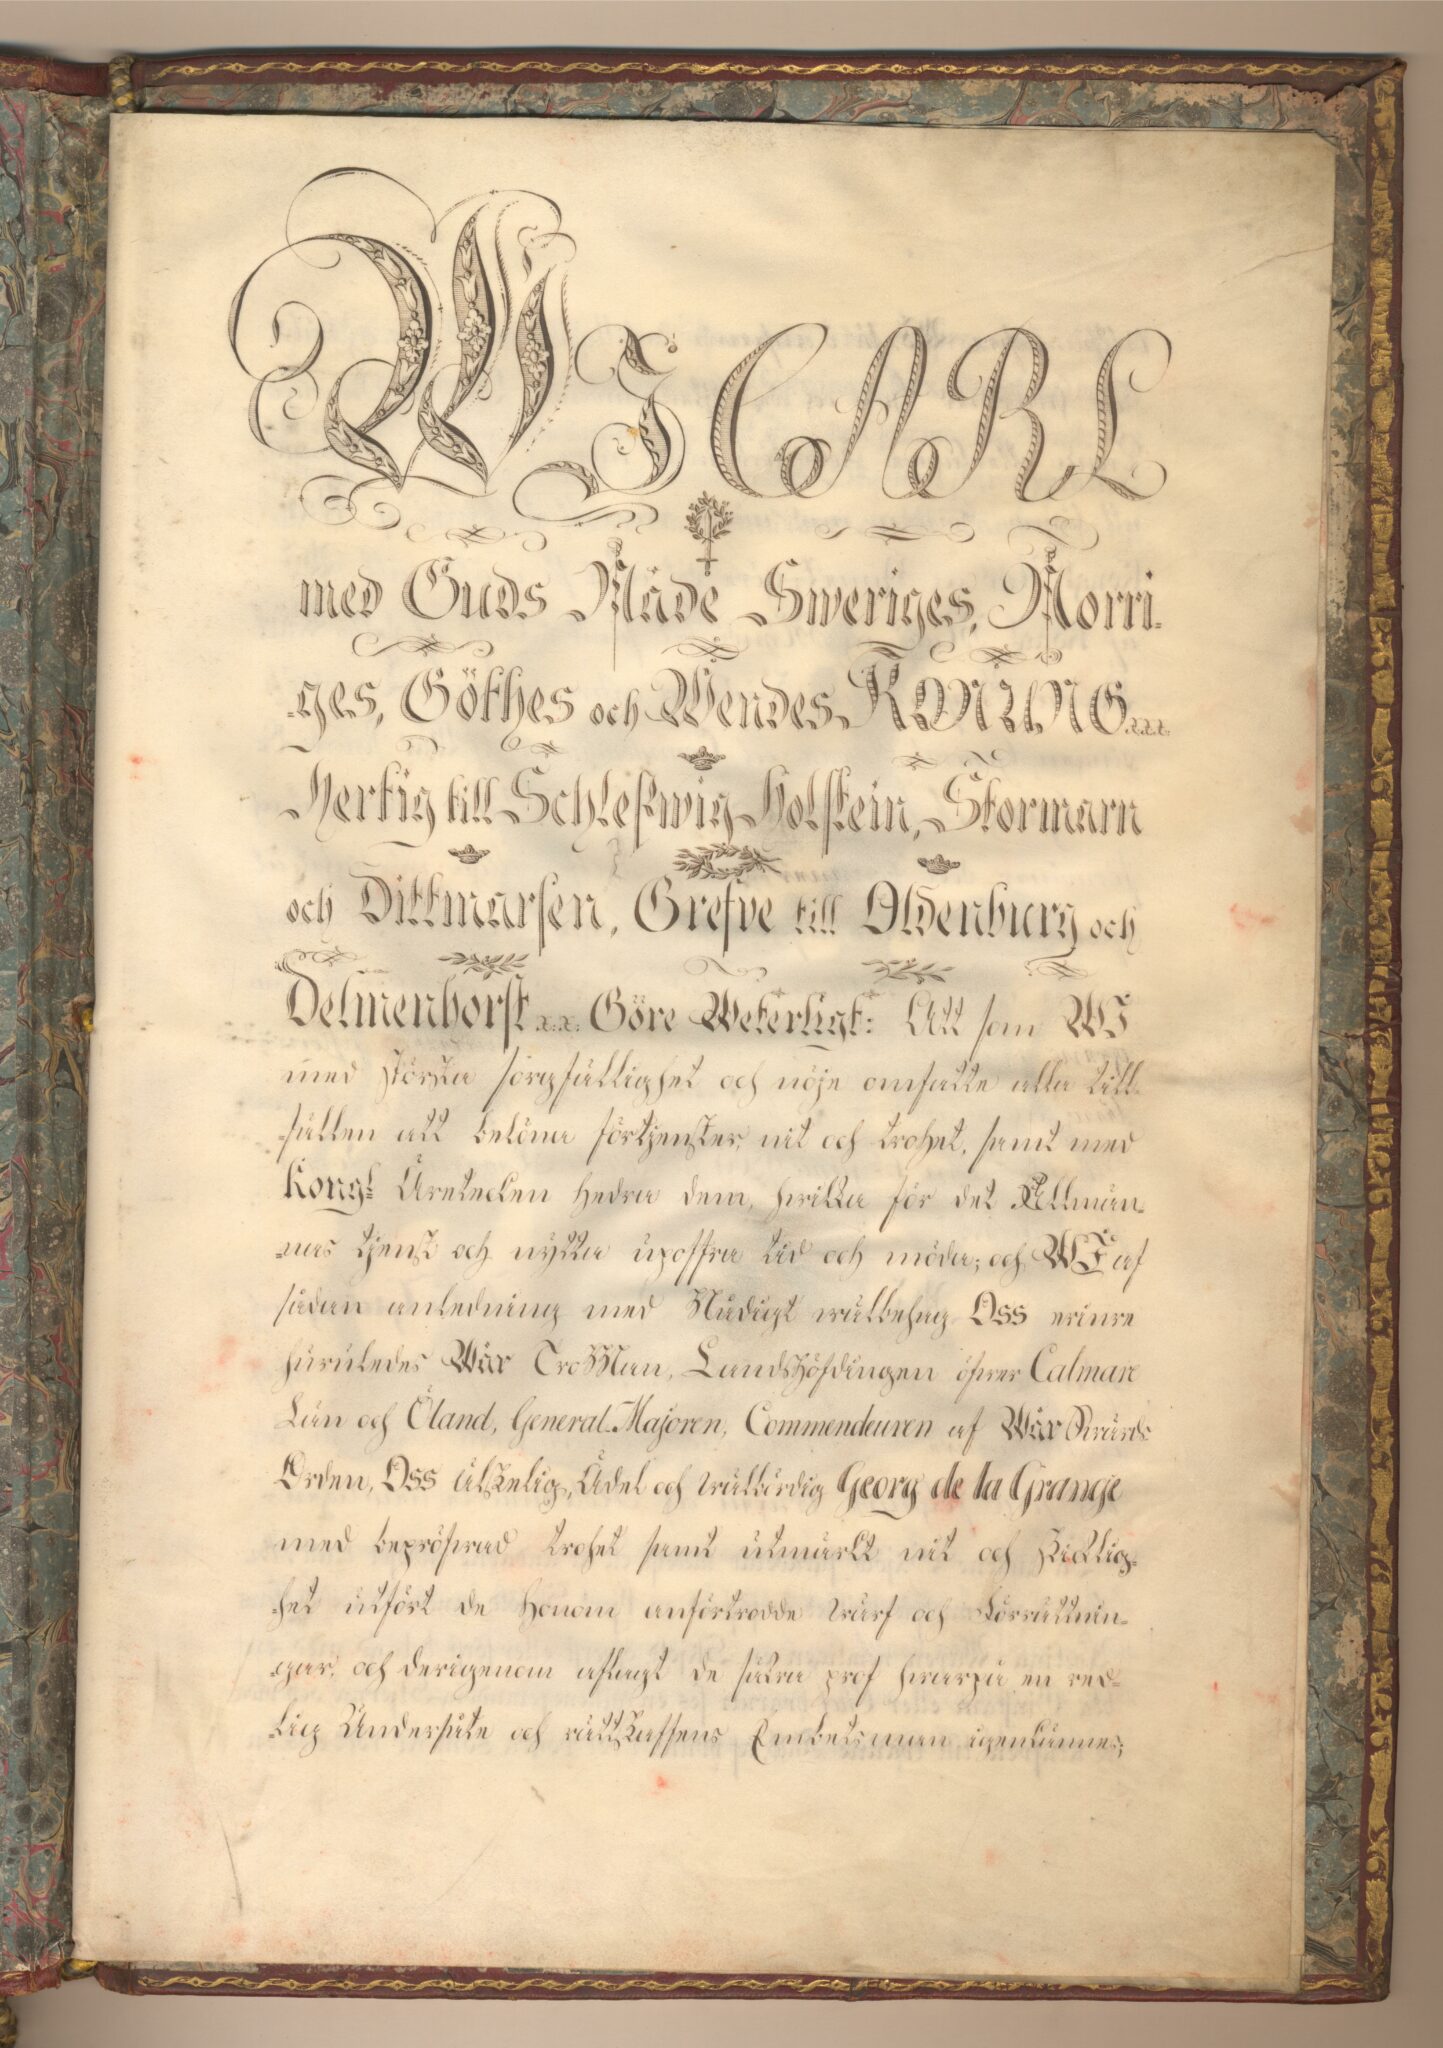 WJ CARL
med Guds Nåde Sweriges, Norri-
-ges, Göthes och Wendes KONUNG x.x.x.
Hertig till Schleßwig Holstein, Stormarn
och Dittmarsen, Grefve till Oldenburg och
Delmenhorst x.x. Göre Weterligt: Att som WJ
med största sorgfällighet och nöje omfatte alla till-
-fällen att belöna förtjenster, nit och trohet, samt med
Kongl Äretecken hedra dem, hwilka för det Allmän-
-nas tjenst och nytta upoffra tid och möda; och WJ af
sådan anledning med Nådigt wälbehag Oss erinre
huruledes Wår TroMan, Landshöfdingen öfwer Calmare
Län och Öland, General-Majoren, Commendeuren af Wår Swärds
Orden, Oss älskelig, Ädel och wälbördig Georg de la Grange
med bepröfwad trohet samt utmärkt nit och skicklig-
-het utfört de Honom anförtrodde wärf och förrättnin-
-gar, och derigenom aflagt de säkra prof hwarpå en red-
-lig Undersåte och rättskaffens Embetsman igenkännes;